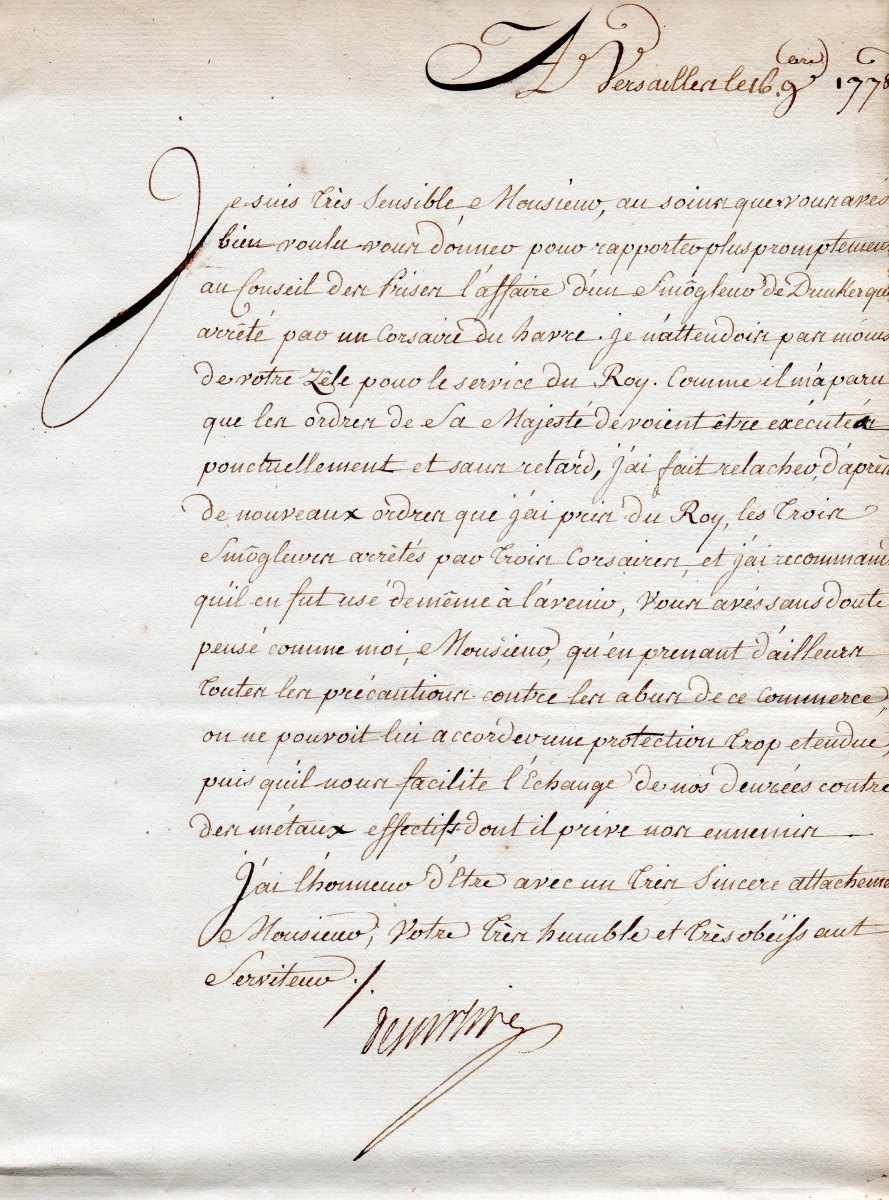 A Versailles le 16. 9(bre) 1778
Je suis très sensible, Monsieur, au soins que vous avés
bien voulu vous donner pour rapporter plus promptement
au Conseil des Prises l'affaire d'un Smôgleur de Dunkerque
arrêté par un Corsaire du havre. je n'attendois pas moins
de votre Zêle pour le service du Roy. Comme il m'a paru
que les ordres de Sa Majesté devoient être exécutés
ponctuellement et sans retard, j'ai fait relacher, d'après
de nouveaux ordres que j'ai pris du Roy, les trois
Smôgleurs arrêtés par trois Corsaires, et j'ai recommandé
qu'il en fut usé de même à l'avenir, Vous avés sans doute
pensé comme moi, Monsieur, qu'en prenant d'ailleurs
toutes les précautions contre les abus de ce Commerce,
on ne pouvoit lui accorder une protection trop etendue,
puis qu'il nous facilite l'Echange de nos denrées contre
des métaux effectifs dont il prive nos ennemis
J'ai l'honneur d'Etre avec un très Sincere attachement
Monsieur, Votre très humble et très obéissant
Serviteur ./.
desartine